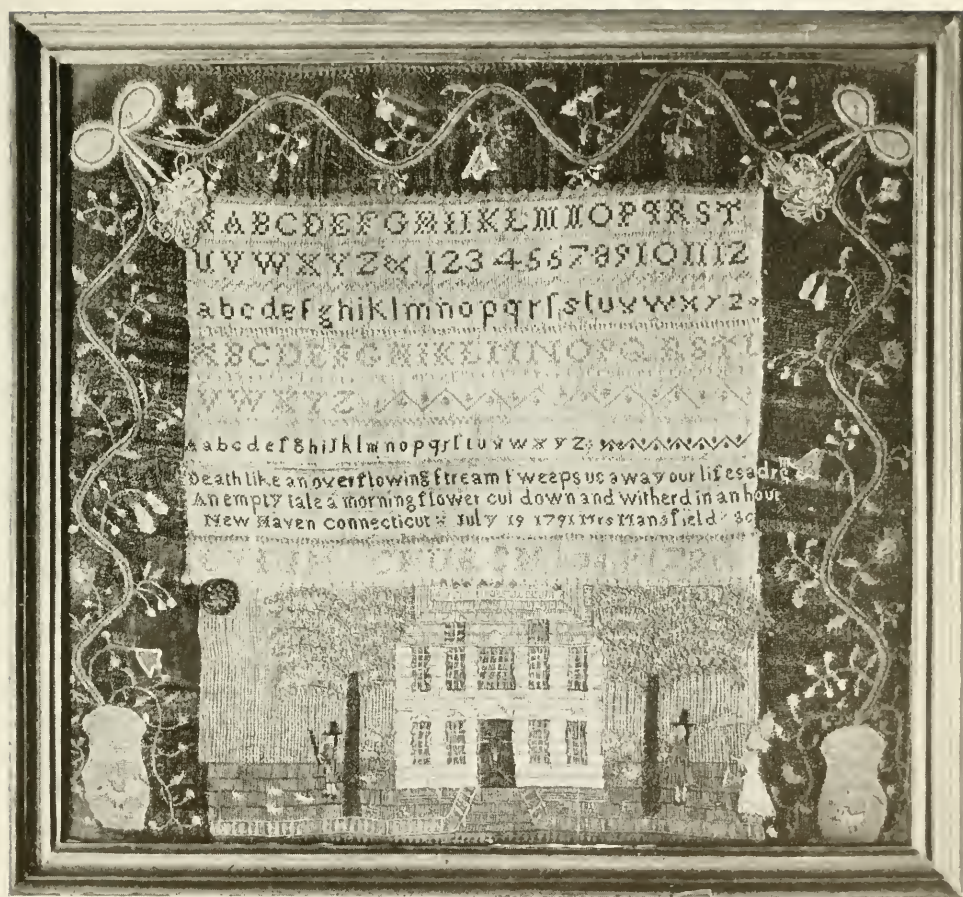 ABCDEFGHIKLMNOPQRST
UVWXYZ& 123456789101112
abcdefghiklmnopqrſstuvwxyz
ABCDEFGHIKLMNOPQRST
VWXYZ
Aabcdefghijklmnopqrſtuvwxyz
Death like an overflowing ſtream ſweeps us away our lifes a dream
An empty tale a morning flower cut down and witherd in an hour
New Haven Connecticut July 19 1791 Mrs Mansfield Sc